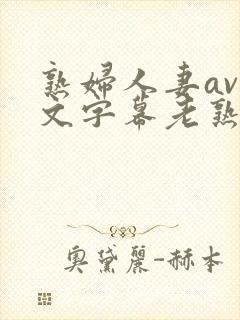 熟婦人妻av
文字幕老熟
奧黛麗-赫本